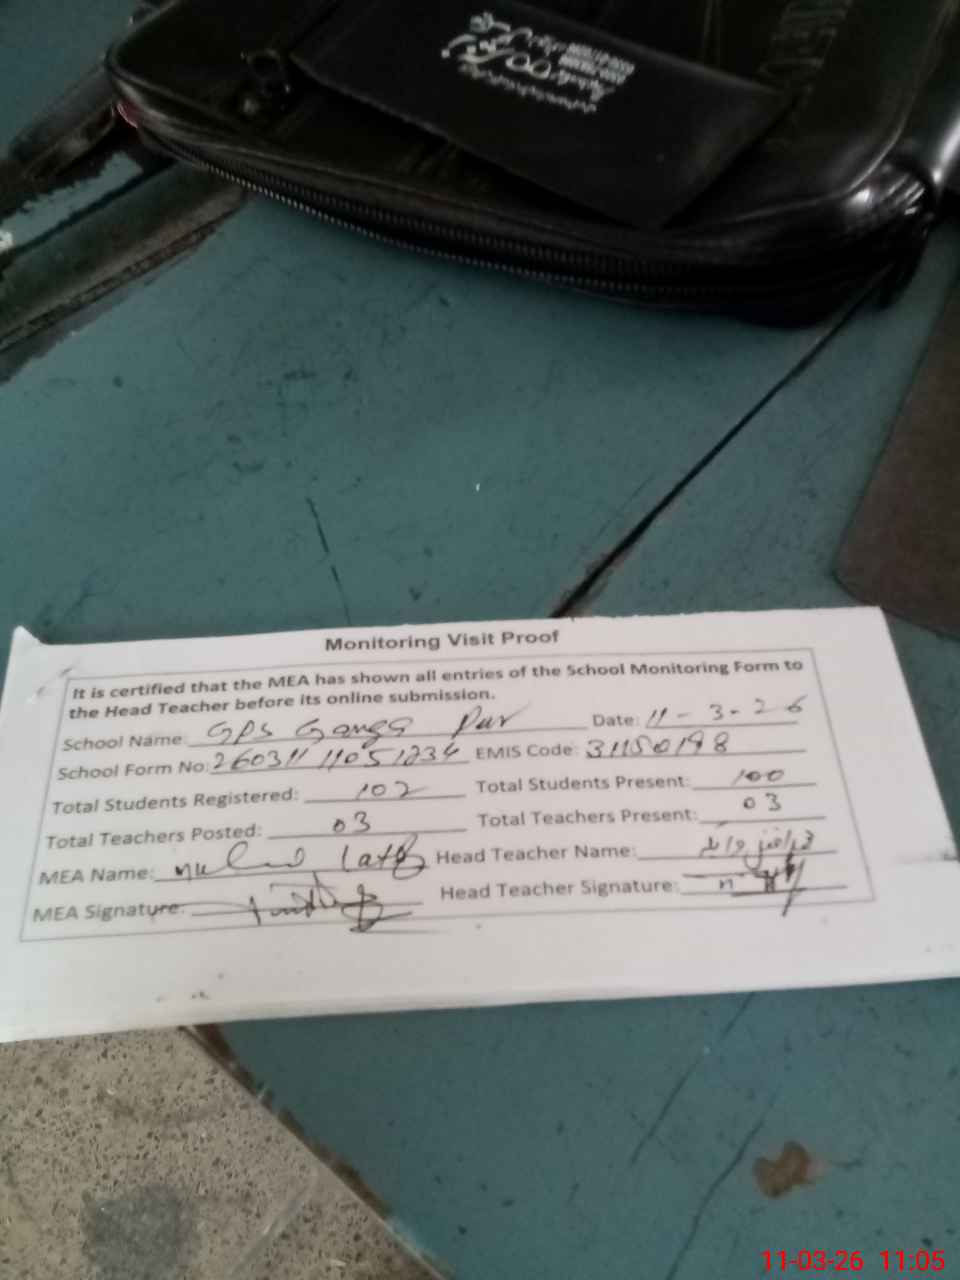 Monitoring Visit Proof
It is certified that the MEA has shown all entries of the School Monitoring Form to
the Head Teacher before its online submission.
School Name: GPS Ganga Pur Date: 11-3-26
School Form No: 260311 11051234 EMIS Code: 31150198
Total Students Registered: 102 Total Students Present: 100
Total Teachers Posted: 03 Total Teachers Present: 03
MEA Name: Head Teacher Name:
MEA Signature: Head Teacher Signature:
11-03-26 11:05